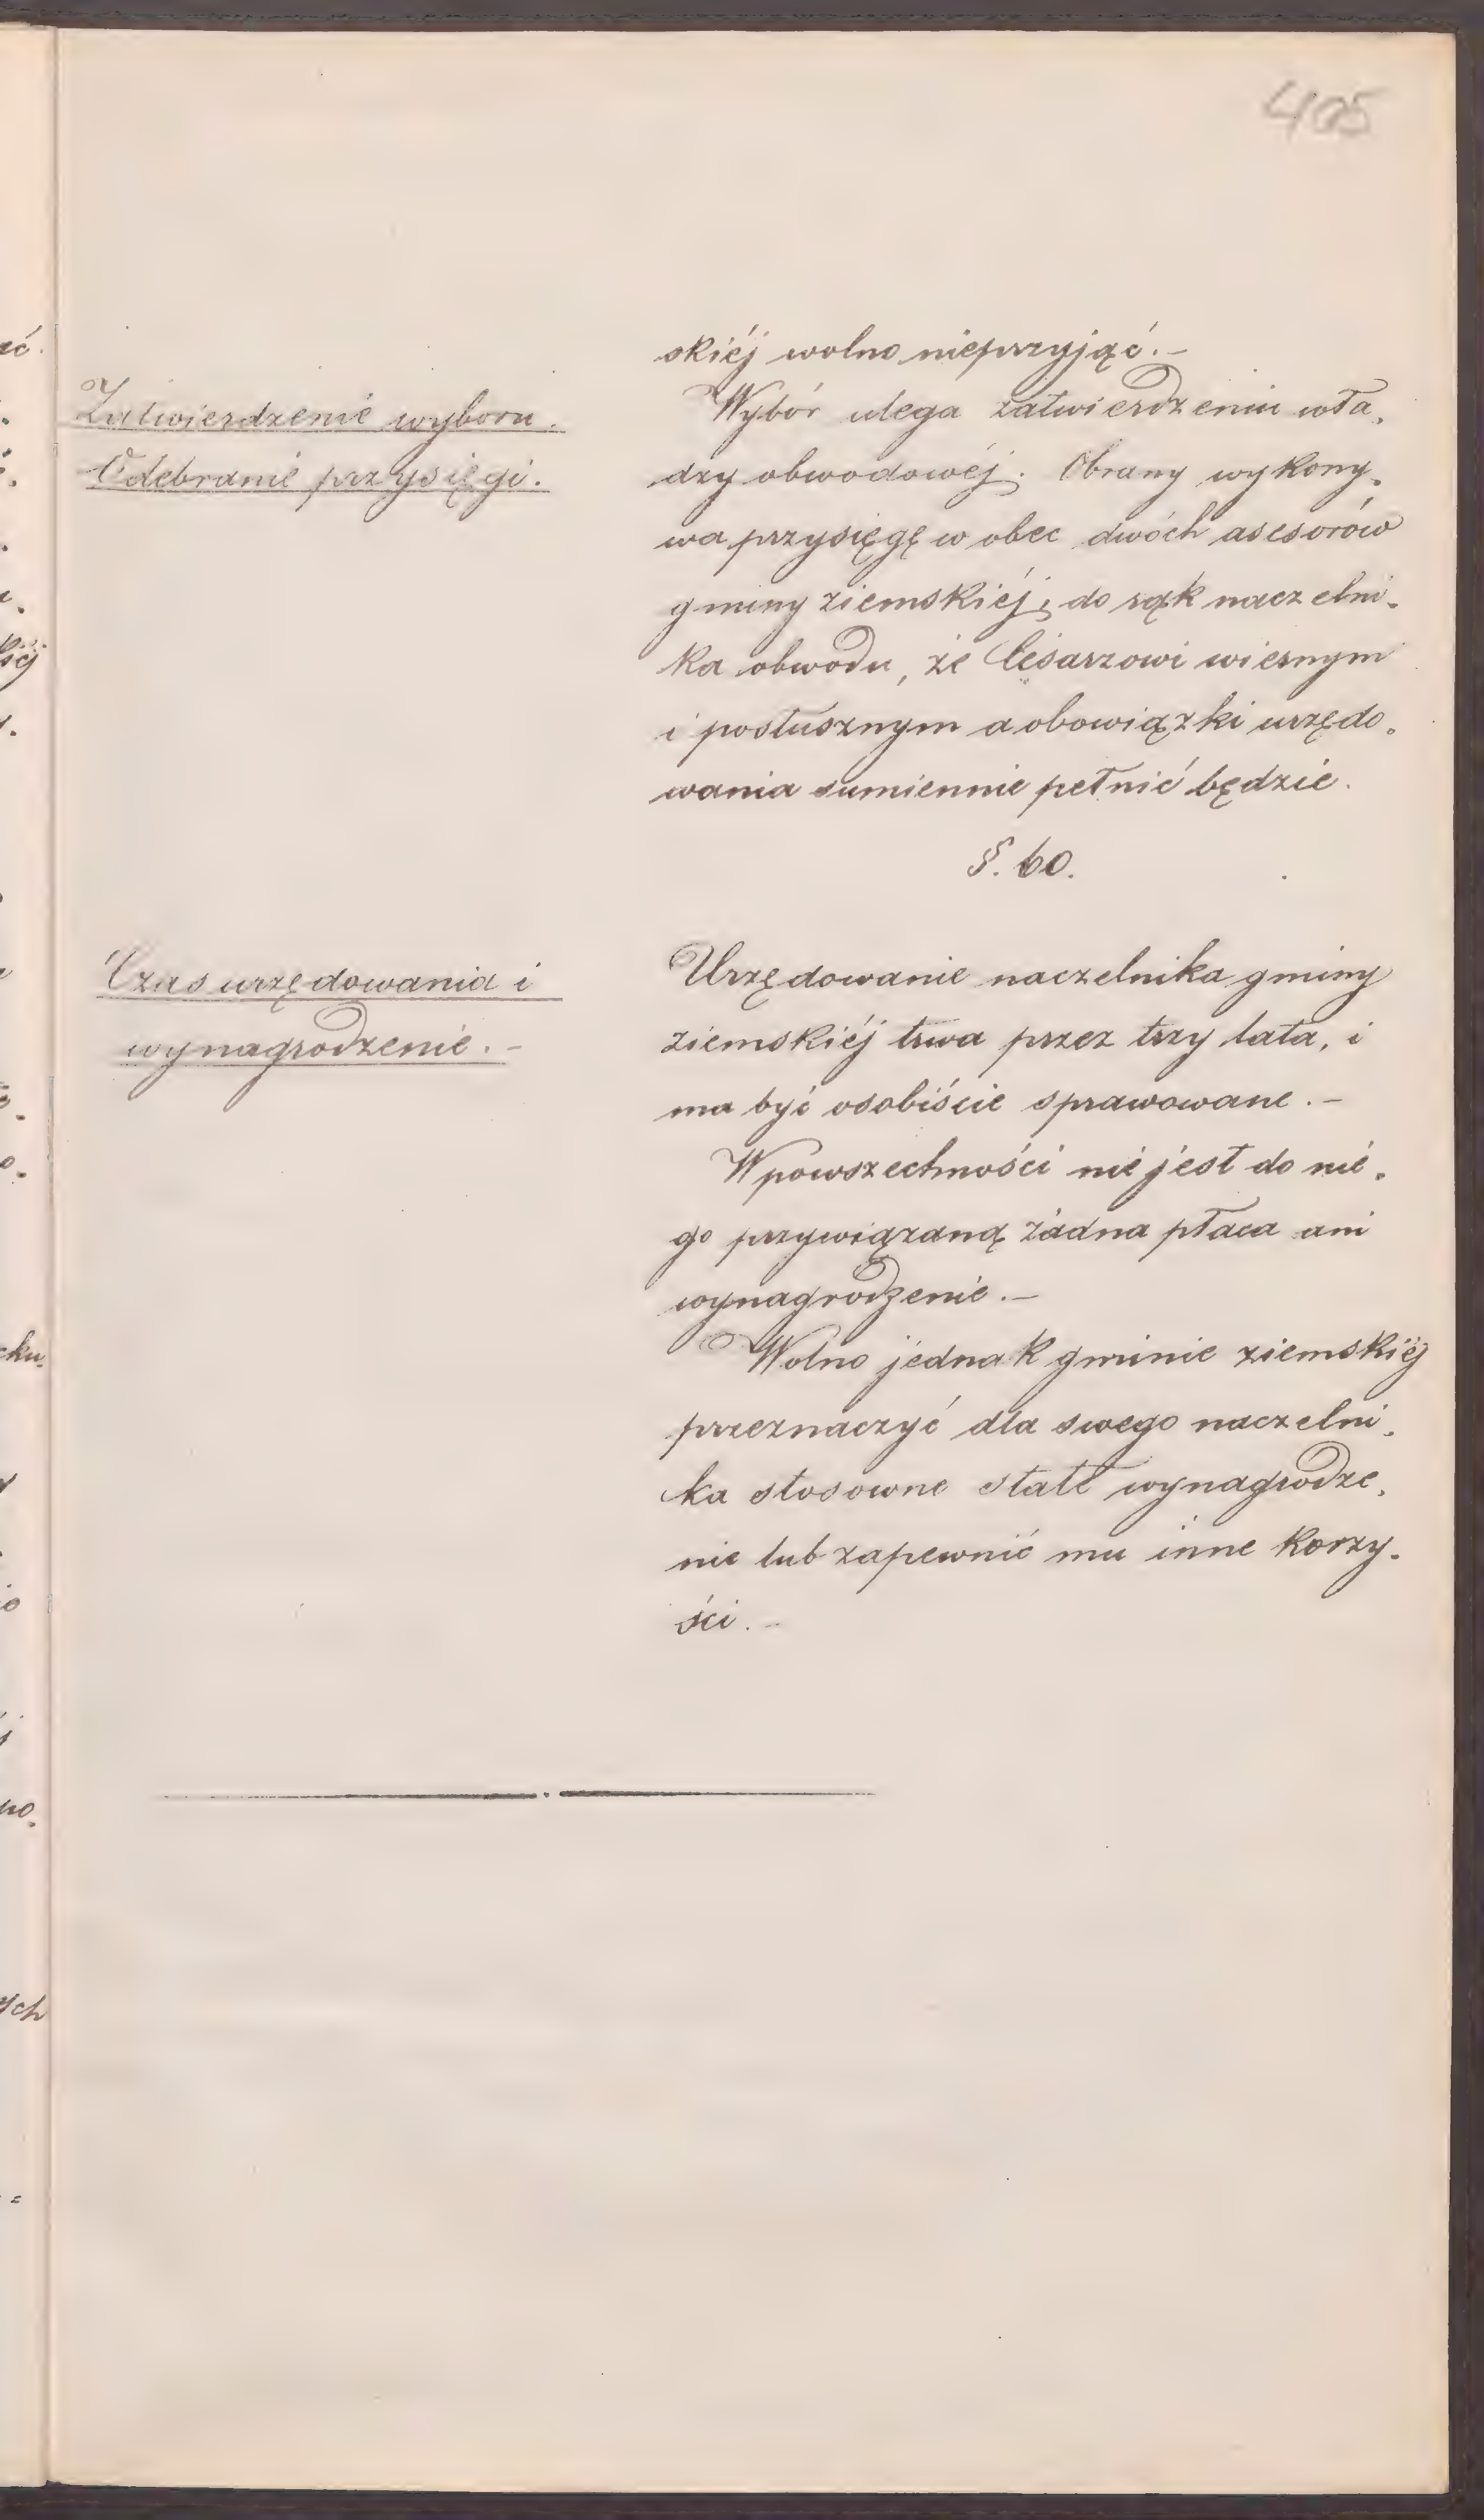 405
skiéj wolno nieprzyjąć.-
Zatwierdzenie wyboru.
Odebranie przysięgi.
Wybór ulega zatwierdzeniu wła-
dzy obwodowéj. Obrany wykony-
wa przysięgę w obec dwóch asesorów
gminy ziemskiéj, do rąk naczelni-
ka obwodu, że Cesarzowi wiernym
i posłusznym a obowiązki urzędo-
wania sumiennie pełnić będzie.
§. 60.
Czas urzędowania i
wynagrodzenie.-
Urzędowanie naczelnika gminy
ziemskiéj trwa przez trzy lata, i
ma być osobiście sprawowane.-
W powszechności nie jest do nie-
go przywiązaną żadna płaca ani
wynagrodzenie.-
Wolno jednak gminie ziemskiéj
przeznaczyć dla swego naczelni-
ka stosowne stałe wynagrodze-
nie lub zapewnić mu inne korzy-
ści.-